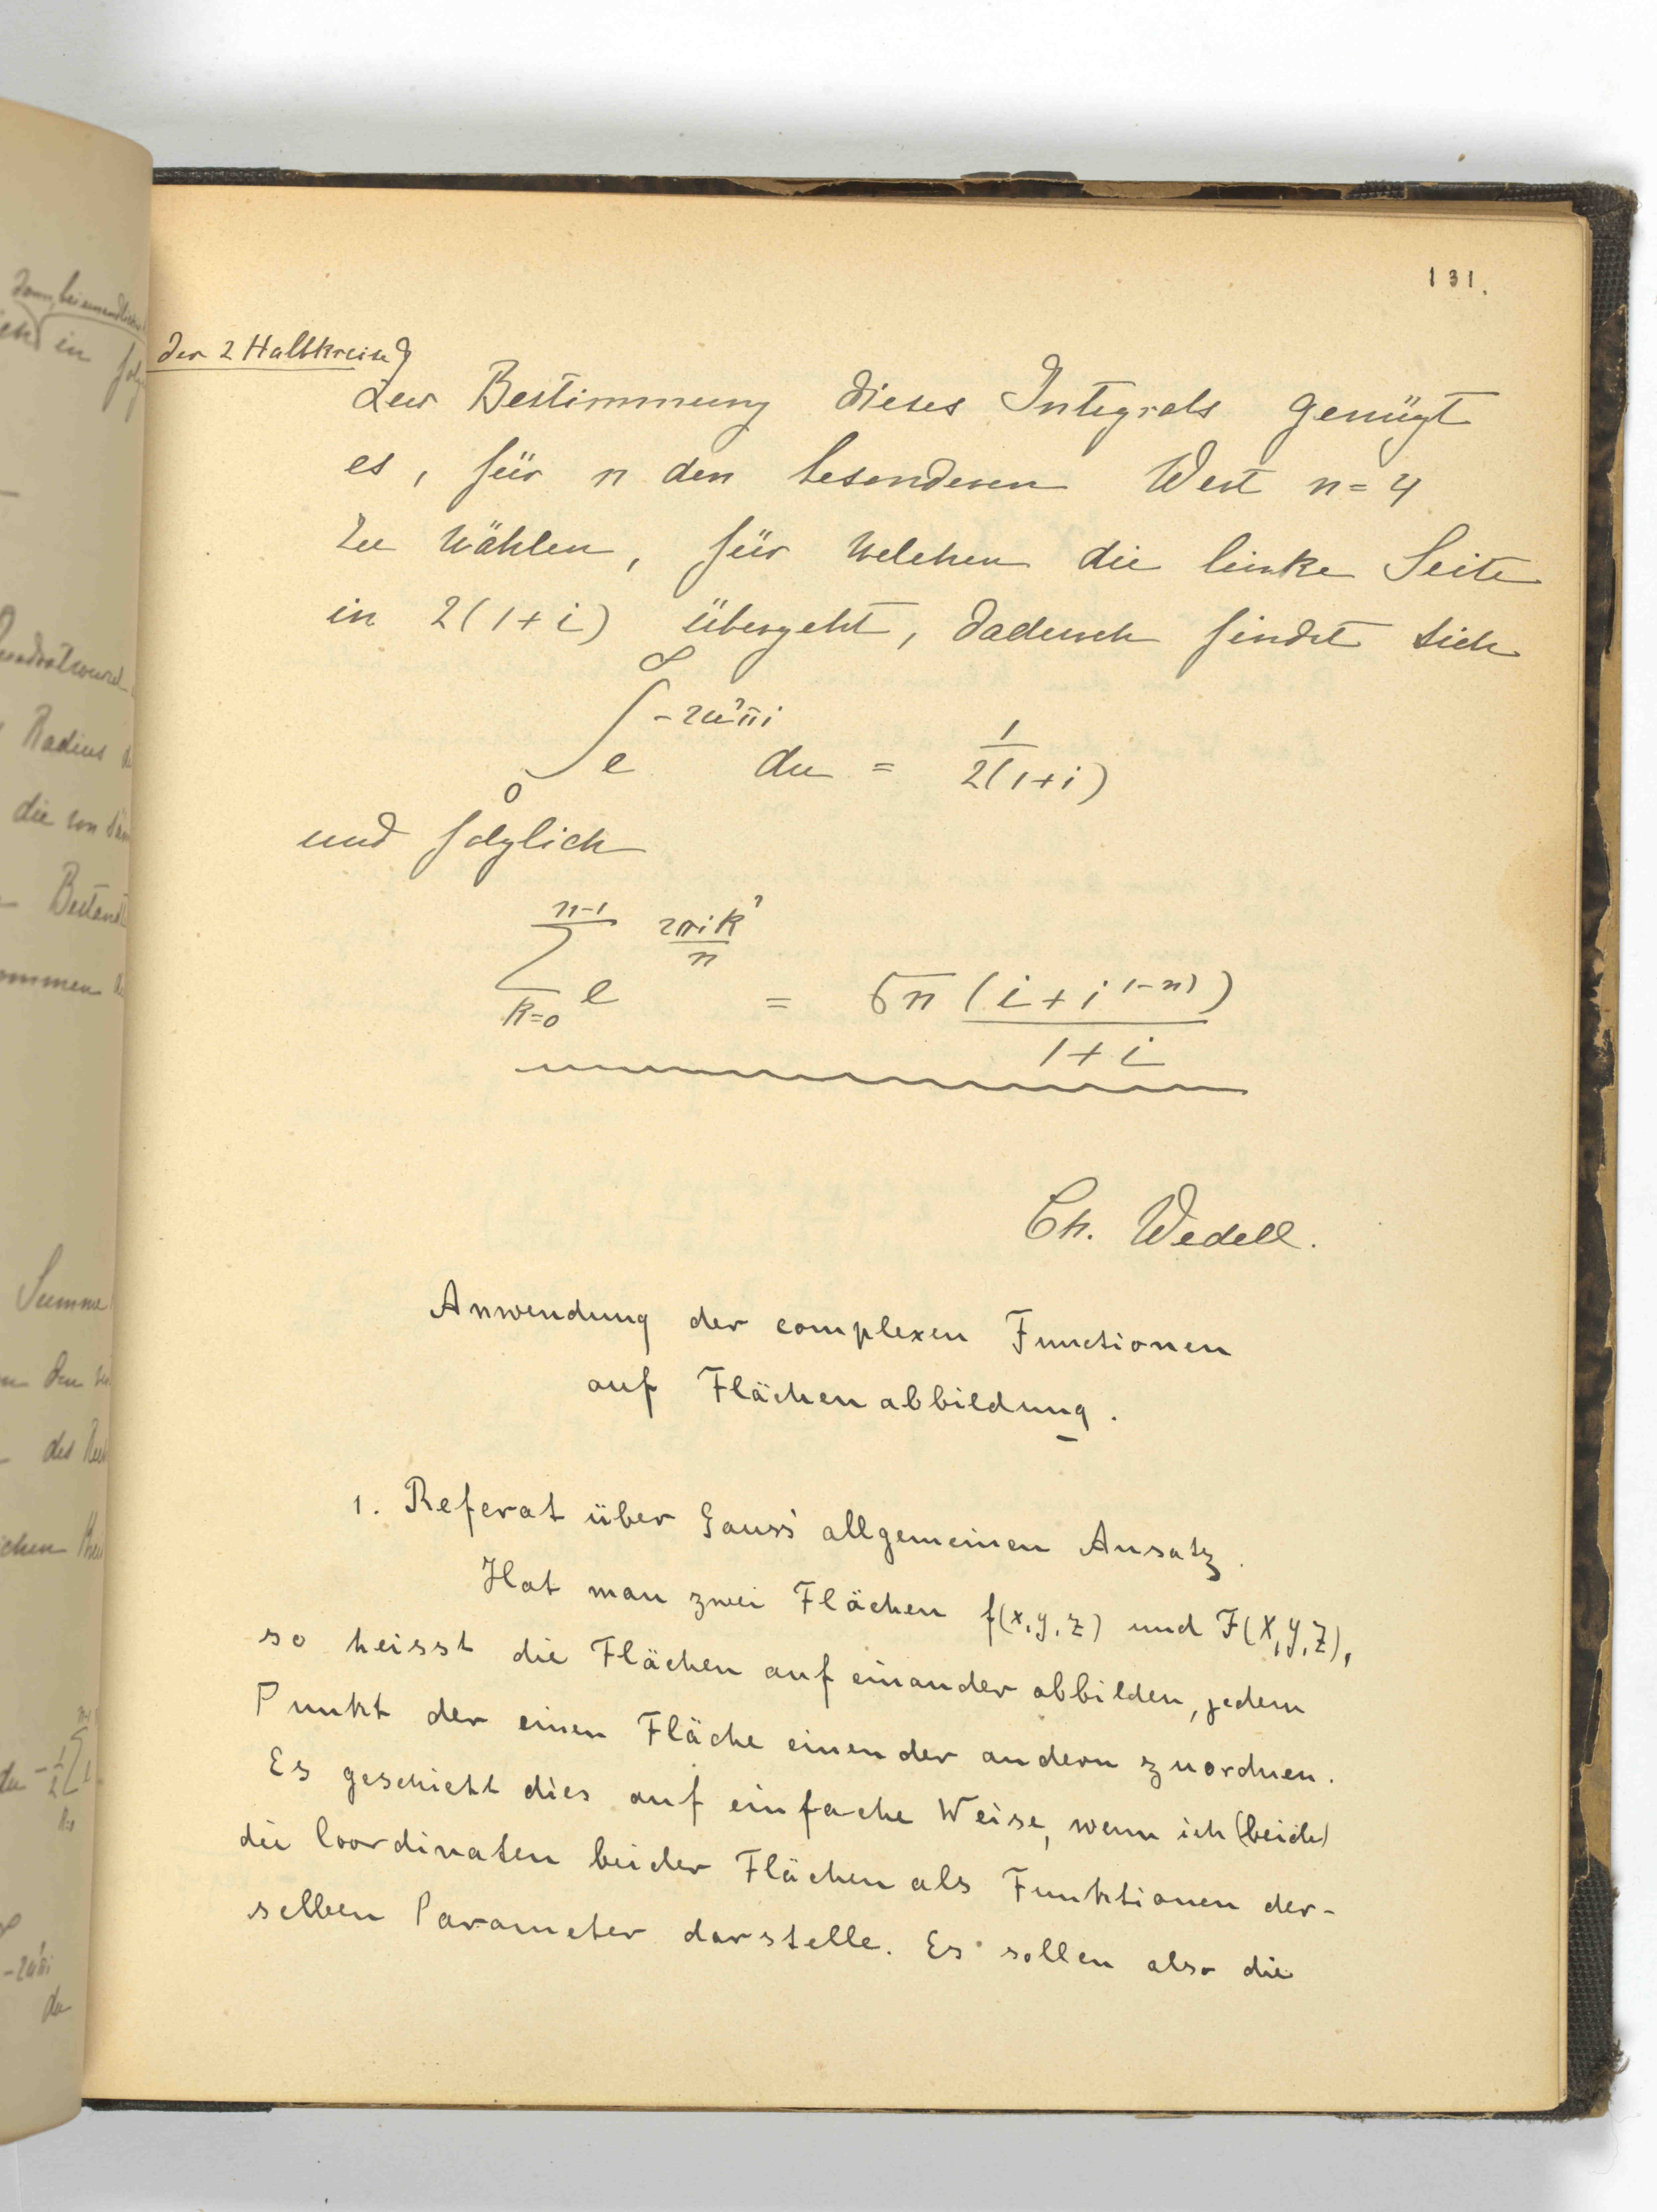 131.
der 2 Halbkreise
Zur Bestimmung dieses Integrals genügt
es, für n den besonderen Wert n = 4
zu wählen, für welchen die linke Seite
in 2(1+i) übergeht, dadurch findet sich
∫₀^∞ e^{-2u²πi} du = 1/(2(1+i))
und folglich
∑_{k=0}^{n-1} e^{2πik²/n} = √n (i + i^{1-n})/(1+i)
Ch. Wedell.
Anwendung der complexen Functionen
auf Flächenabbildung.
1. Referat über Gauss' allgemeinen Ansatz.
Hat man zwei Flächen f(x,y,z) und F(X,Y,Z),
so heisst die Flächen auf einander abbilden, jedem
Punkt der einen Fläche einen der andern zuordnen.
Es geschieht dies auf einfache Weise, wenn ich (beide)
die Coordinaten beider Flächen als Funktionen der-
selben Parameter darstelle. Es sollen also die